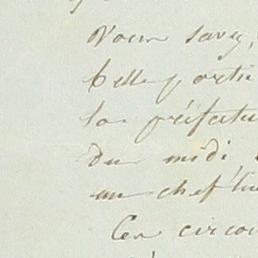 Vous savez,
belle partie
la préfectu
du midi,
un chef lie
Ces circon